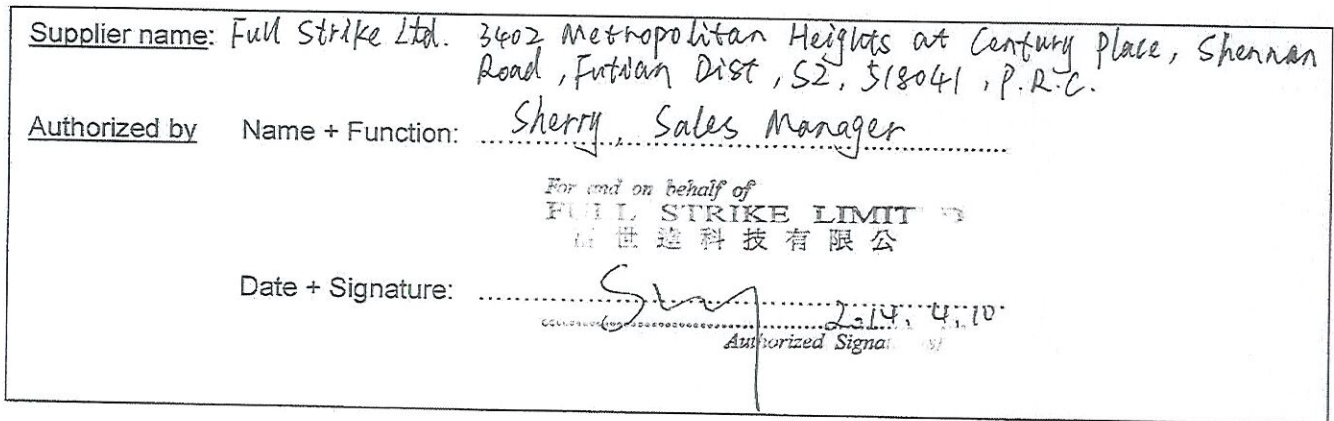 Supplier name: Full Strike Ltd. 3402 Metropolitan Heights at Century Place, Shennan
Road, Futian Dist, SZ, 518041, P.R.C.
Authorized by Name + Function: Sherry, Sales Manager
For and on behalf of
FULL STRIKE LIMITED
世達科技有限公
Date + Signature: 2.14, 4, 10
Authorized